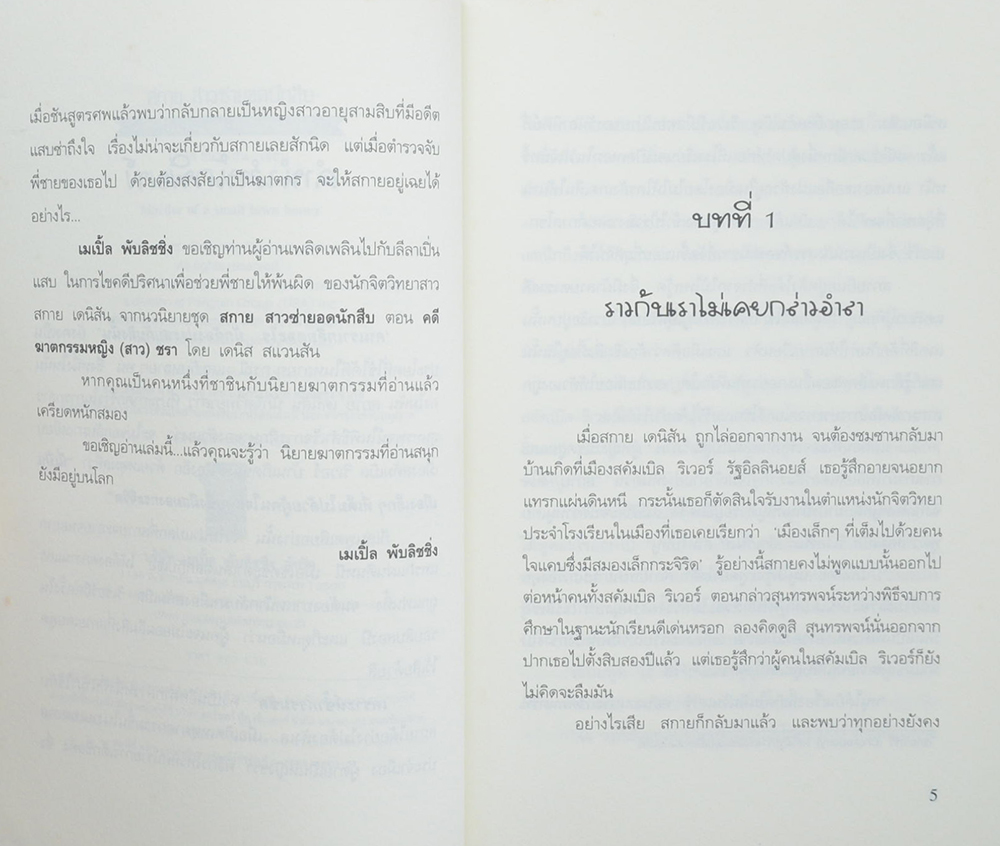 เมื่อชันสูตรศพแล้วพบว่ากลับกลายเป็นหญิงสาวอายุสามสิบที่มีอดีต
แสบซ่าถึงใจ เรื่องไม่น่าจะเกี่ยวกับสกายเลยสักนิด แต่เมื่อตำรวจจับ
พี่ชายของเธอไป ด้วยต้องสงสัยว่าเป็นฆาตกร จะให้สกายอยู่เฉยได้
อย่างไร...
เมเปิ้ล พับลิชชิ่ง ขอเชิญท่านผู้อ่านเพลิดเพลินไปกับลีลาเปิ่น
แสบ ในการไขคดีปริศนาเพื่อช่วยพี่ชายให้พ้นผิด ของนักจิตวิทยาสาว
สกาย เดนิสัน จากนวนิยายชุด สกาย สาวซ่ายอดนักสืบ ตอน คดี
ฆาตกรรมหญิง (สาว) ชรา โดย เดนิส สแวนสัน
หากคุณเป็นคนหนึ่งที่ชาชินกับนิยายฆาตกรรมที่อ่านแล้ว
เครียดหนักสมอง
ขอเชิญอ่านเล่มนี้...แล้วคุณจะรู้ว่า นิยายฆาตกรรมที่อ่านสนุก
ยังมีอยู่บนโลก
เมเปิ้ล พับลิชชิ่ง
บทที่ 1
ราวกับเราไม่เคยกล่าวอำลา
เมื่อสกาย เดนิสัน ถูกไล่ออกจากงาน จนต้องซมซานกลับมา
บ้านเกิดที่เมืองสคัมเบิล ริเวอร์ รัฐอิลลินอยส์ เธอรู้สึกอายจนอยาก
แทรกแผ่นดินหนี กระนั้นเธอก็ตัดสินใจรับงานในตำแหน่งนักจิตวิทยา
ประจำโรงเรียนในเมืองที่เธอเคยเรียกว่า 'เมืองเล็กๆ ที่เต็มไปด้วยคน
ใจแคบซึ่งมีสมองเล็กกระจิริด' รู้อย่างนี้สกายคงไม่พูดแบบนั้นออกไป
ต่อหน้าคนทั้งสคัมเบิล ริเวอร์ ตอนกล่าวสุนทรพจน์ระหว่างพิธีจบการ
ศึกษาในฐานะนักเรียนดีเด่นหรอก ลองคิดดูสิ สุนทรพจน์นั่นออกจาก
ปากเธอไปตั้งสิบสองปีแล้ว แต่เธอรู้สึกว่าผู้คนในสคัมเบิล ริเวอร์ก็ยัง
ไม่คิดจะลืมมัน
อย่างไรเสีย สกายก็กลับมาแล้ว และพบว่าทุกอย่างยังคง
5